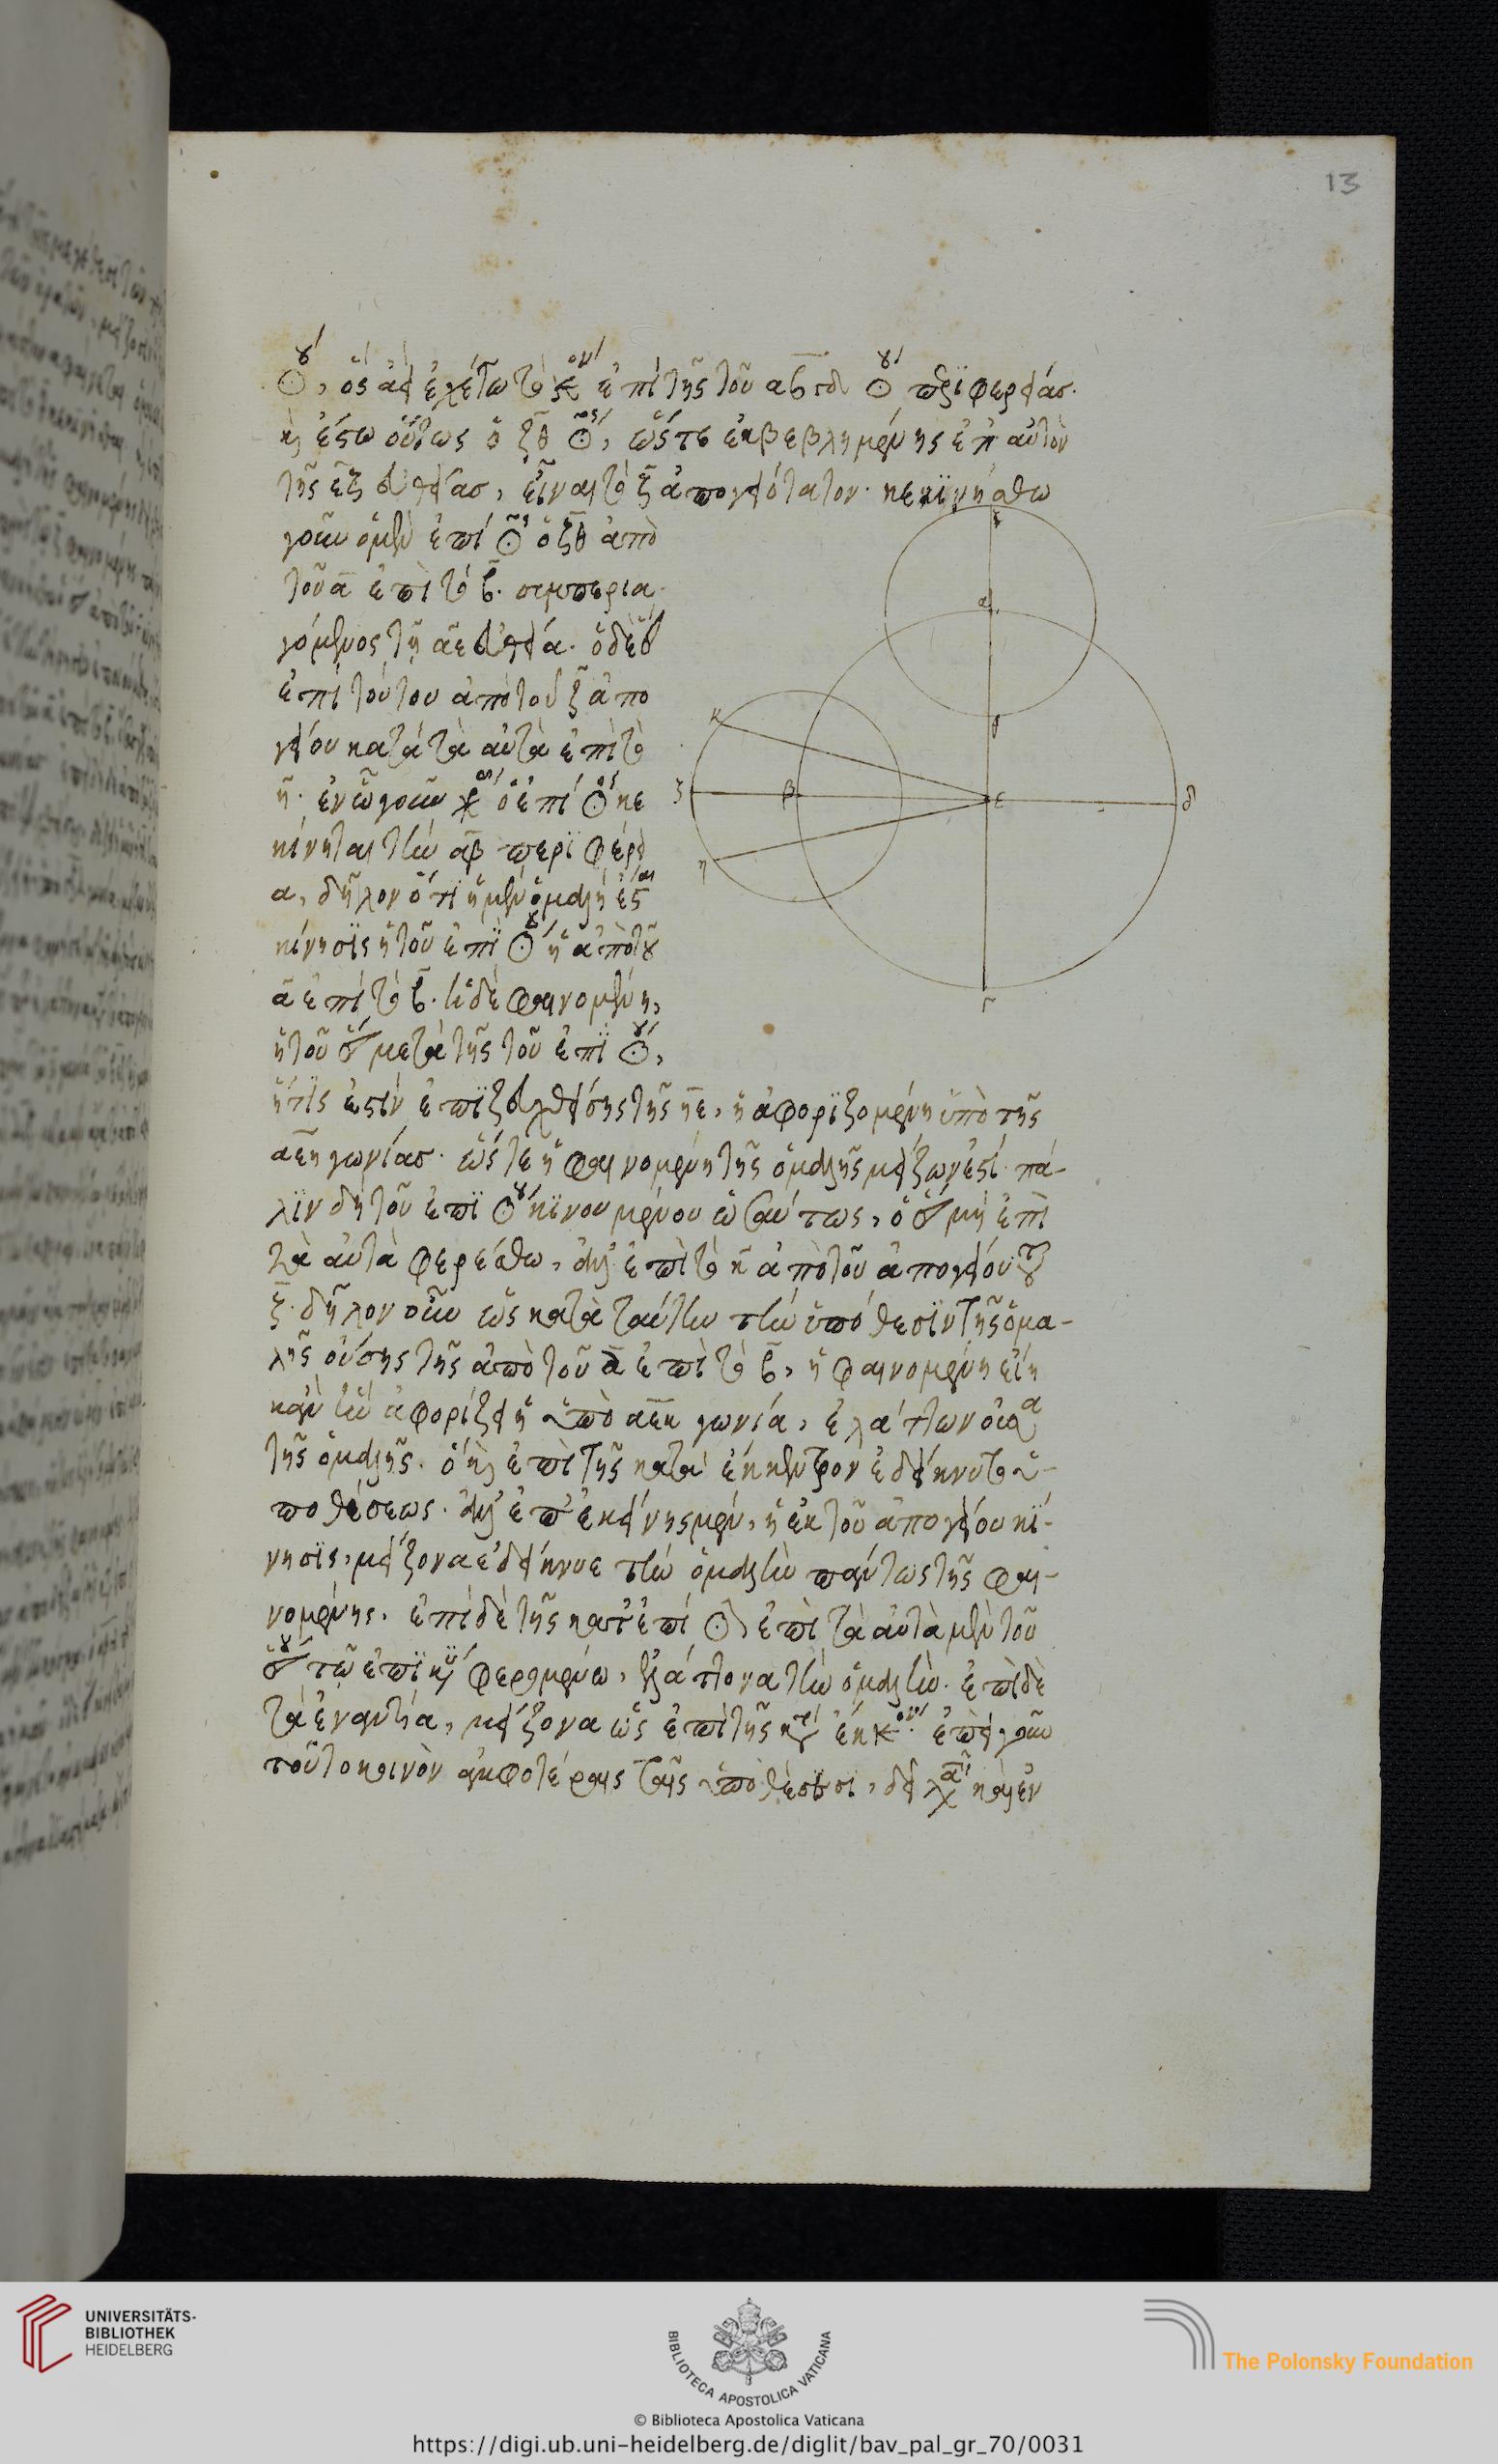 13
☉ου, ὃς ἀεὶ ἐχέτω τὸ κέντρον ἐπὶ τῆς τοῦ αβγδ ☉ου περιφερείας.
καὶ ἔστω οὗτος ὁ ζθ ☉ος, ὥστε ἐκβεβλημένης ἐπ αὐτὸν
τῆς εζ εὐθείας, εἶναι τὸ ζ ἀπογειότατον. κεκινήσθω
γοῦν ὁ μὲν ἐπί☉ος ὁ ζθ ἀπὸ
τοῦ α ἐπὶ τὸ β. συμπερια
γόμενος τῇ αε εὐθεία. ὁ δὲ
ἐπὶ τούτου ἀπὸ τοῦ ζ ἀπο
γείου κατὰ τὰ αὐτὰ ἐπὶ τὸ
η. ἐν ᾧ γοῦν χρόνω ὁ ἐπί☉ος κε
κίνηται τὴν αβ περιφέρει
α, δῆλον ὅτι ἡ μὲν ὁμαλή ἐστι
κίνησις ἡ τοῦ ἐπι☉ου ἡ ἀπὸ τοῦ
α ἐπὶ τὸ β. ἡ δὲ φαινομένη,
ἡ τοῦ μετὰ τῆς τοῦ ἐπι☉ου,
ἥτις ἐστὶν ἐπιζευχθείσης τῆς ηε, ἡ ἀφοριζομένη ὑπὸ τῆς
αεη γωνίας. ὥστε ἡ φαινομένη τῆς ὁμαλῆς μείζων ἐστί. πά-
λιν δὴ τοῦ ἐπι☉ου κινουμένου ὡσαύτως, ὁ μὴ ἐπὶ
τὰ αὐτὰ φερέσθω, ἀλλ ἐπὶ τὸ κ ἀπὸ τοῦ ἀπογείου τοῦ
ζ. δῆλον οὖν ὡς κατὰ ταύτην τὴν ὑπόθεσιν τῆς ὁμα-
λῆς οὔσης τῆς ἀπὸ τοῦ α ἐπὶ τὸ β, ἡ φαινομένη εἴη
κἂν ἣν ἀφορίζει ἡ ὑπὸ αεκ γωνία, ἐλάττων οὖσα
τῆς ὁμαλῆς. ὃ καὶ ἐπὶ τῆς κατὰ ἔκκεντρον ἐδείκνυτο ὑ-
ποθέσεως. ἀλλ ἐπ ἐκείνης μὲν, ἡ ἐκ τοῦ ἀπογείου κί-
νησις, μείζονα ἐδείκνυε τὴν ὁμαλὴν πάντως τῆς φαι-
νομένης. ἐπὶ δὲ τῆς κατ ἐπί☉ον ἐπὶ τὰ αὐτὰ μὲν τοῦ
τῷ ἐπικύκλω φερομένω, ἐλάττονα τὴν ὁμαλήν. ἐπὶ δὲ
τὰ ἐναντία, μείζονα ὡς ἐπὶ τῆς κατ ἔκκεντρον. ἐπεὶ γοῦν
τοῦτο κοινὸν ἀμφοτέραις ταῖς ὑποθέσεσι, καὶ ἐν
κ
α
θ
ζ
β
ε
δ
η
γ
UNIVERSITÄTS-
BIBLIOTHEK
HEIDELBERG
BIBLIOTECA APOSTOLICA VATICANA
The Polonsky Foundation
© Biblioteca Apostolica Vaticana
https://digi.ub.uni-heidelberg.de/diglit/bav_pal_gr_70/0031